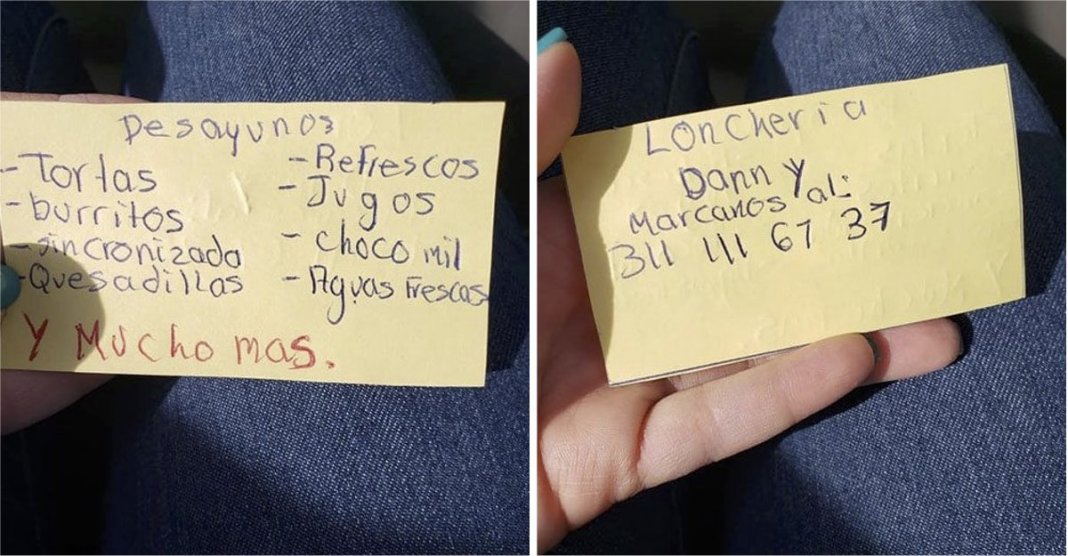 Desayunos
-Tortas
-burritos
-Sincronizada
-Quesadillas
-Refrescos
-Jugos
-choco mil
-Aguas Frescas
Y Mucho mas.
LonCheria
Danny
Marcanos al:
311 111 67 37